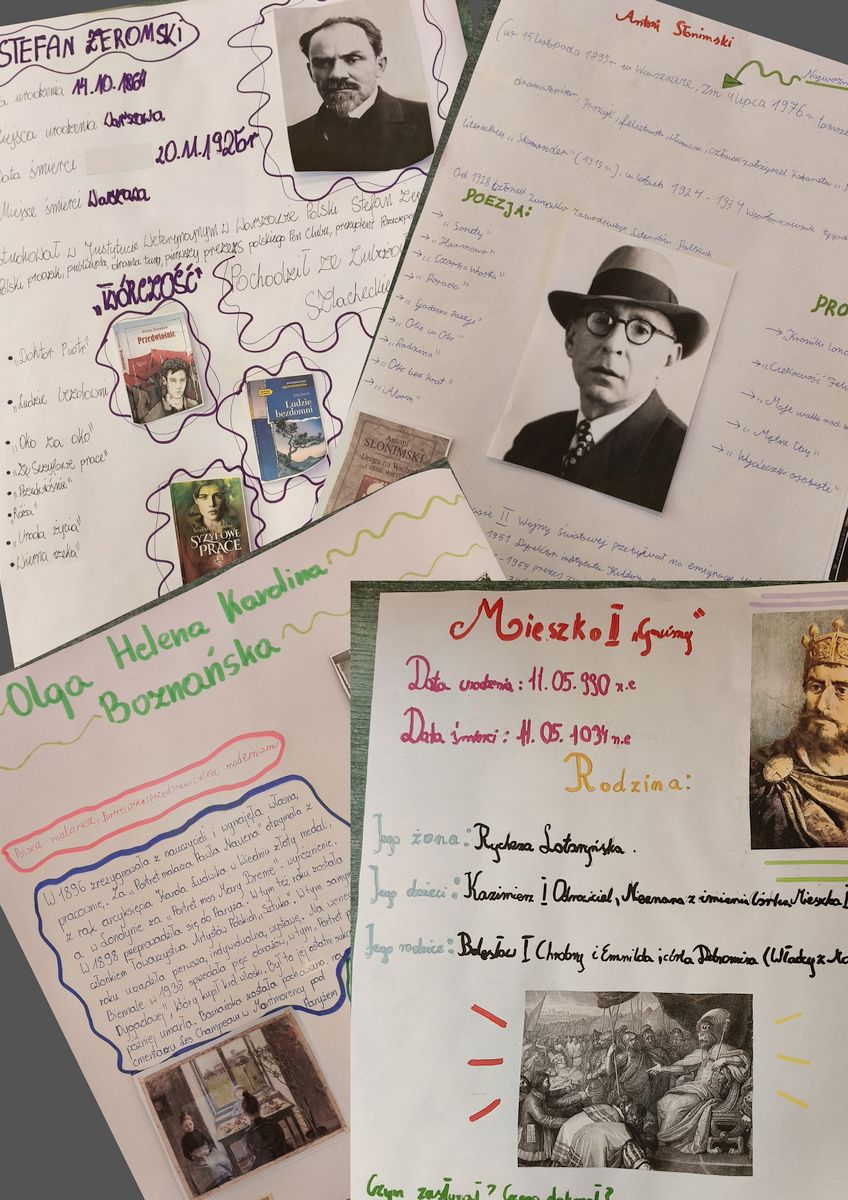 STEFAN ŻEROMSKI
urodzenia 14.10.1864
Miejsca urodzenia Warszawa
Data śmierci : 20.11.1925r
Miejsce śmierci Warszawa
studiował w Instytucie Weterynaryjnym w Warszawie Polski Stefan
Polski prozaik, publicysta, dramaturg, pierwszy prezes polskiego Pen Clubu, prezydent
Pochodził ze
Szlacheckiej
„TWÓRCZOŚĆ"
• „Doktor Piotr"
• „Ludzie bezdomni
• „Oko za oko"
• „Syzyfowe prace"
• „Przedwiośnie"
• „Róża"
• „Uroda życia"
• „Wierna rzeka"
Przedwiośnie
Ludzie bezdomni
SYZYFOWE PRACE
Antoni Słonimski
(ur 15 listopada 1895r w Warszawie, Zm 4 lipca 1976r tamże
dramatopisarz, Prozaik, felietonista, tłumacz i członek założyciel Kabaretu
literackiej „Skamander" (1919r), w latach 1924 - 1934 współpracownik
Od 1928 członek Związku Zawodowego Literatów Polskich
POEZJA:
→ „Sonety"
→ „Harmonia"
→ „Czarna Wiosna"
→ „Parada"
→ „Godzina Poezji"
→ „Oko w Oko"
→ „Rodzina"
→ „Okno bez krat"
→ „Alarm"
PRO
→ „Kroniki
→ „Ciekawość
→ „Moje walki nad
→ „Mętne łby"
→ „Wycieczki osobiste"
Antoni
SŁONIMSKI
Droga na Wschód
i inne wiersze
II Wojny światowej przebywał na emigracji
1951 Dyrektor instytutu Kultury
prezes
Olga Helena Karolina
Boznańska
Polska malarka, Portrecistka i przedstawicielka modernizmu
W 1896 zrezygnowała z nauczycieli i wynajęła własną
pracownię. Za „Portret malarza Paula Nauena" otrzymała z
rąk arcyksięcia Karola Ludwika w Wiedniu złoty medal,
a w Londynie za „Portret miss Mary Breme" - wyróżnienie.
W 1898 przeprowadziła się do Paryża. W tym też roku została
członkiem Towarzystwa Artystów Polskich „Sztuka". W tym samym
roku urządziła pierwszą, indywidualną, wystawę. Na
Biennale w 1938 sprzedała pięć obrazów, w tym „Portret
Dygatowej" który kupił król włoski. Był to jej ostatni
później umarła. Boznańska została pochowana na
cmentarzu Les Champeaux w Montmorency pod Paryżem
Mieszko II „Gnuśny"
Data urodzenia : 11.05.990 n.e
Data śmierci : 11.05.1034 n.e
Rodzina:
Jego żona: Rycheza Lotaryńska.
Jego dzieci: Kazimierz I Odnowiciel, Nieznana z imienia córka Mieszka
Jego rodzice: Bolesław I Chrobry i Emnilda, córka Dobromira (Władcy z
Czym zasłynął? Czego dokonał?